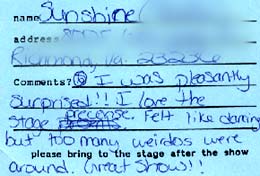 name Sunshine
address
Richmond, Va.
Comments? I was pleasantly
surprised!! I love the
stage precense. Felt like dancing
but too many weirdos were
please bring to the stage after the show
around. Great Show!!